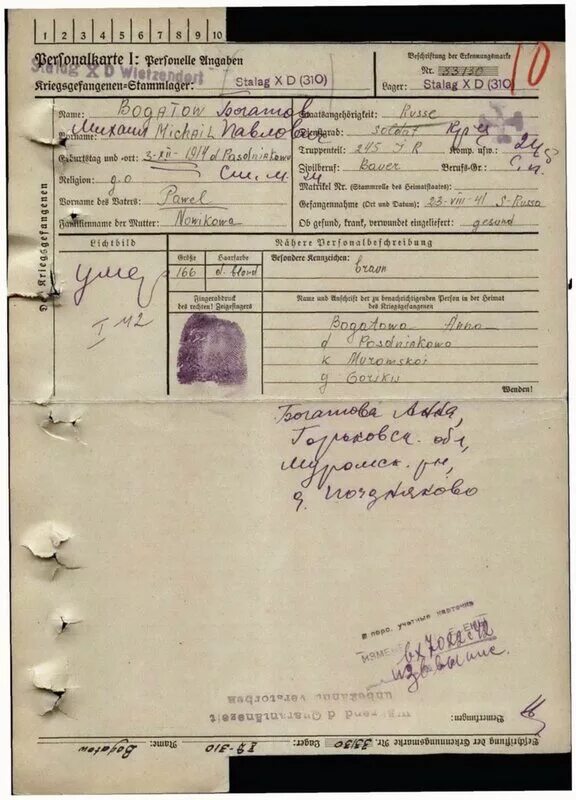 1 2 3 4 5 6 7 8 9 10
Personalkarte I: Personelle Angaben
Stalag X D Wietzendorf
Kriegsgefangenen-Stammlager: Stalag X D (310)
Beschriftung der Erkennungsmarke
Nr. 33130
Lager: Stalag X D (310)
10
Name: BOGATOW Богатов
Vorname: Michail Михаил Павлович
Geburtstag und -ort: 3-XII-1914 d Posdniakowo
Religion: g.o
Vorname des Vaters: Pawel
Familienname der Mutter: Nowikowa
Staatsangehörigkeit: Russe
Dienstgrad: soldat
Truppenteil: 245 J R Komp. usw.:
Zivilberuf: Bauer Berufs-Gr.:
Matrikel Nr. (Stammrolle des Heimatstaates):
Gefangennahme (Ort und Datum): 23-VIII-41 S-Russa
Ob gesund, krank, verwundet eingeliefert: gesund
Des Kriegsgefangenen
Lichtbild
умер
I 42
Nähere Personalbeschreibung
Größe Haarfarbe
166 d. blond
Besondere Kennzeichen: braun
Fingerabdruck
des rechten! Zeigefingers
Name und Anschrift der zu benachrichtigenden Person in der Heimat
des Kriegsgefangenen
Bogatowa Anna
d Posdniakowo
k Muromskoi
g Gorikis
Wenden!
Богатова Анна,
Горьковск. обл
Муромск. рн,
д. Поздняково
В перс. учетные карточки
вх 7022с 42
während d Quarantänezeit
unbekannt verstorben
Bemerkungen:
Beschriftung der Erkennungsmarke Nr. 33130 Lager: XD-310 Name: Bogatow